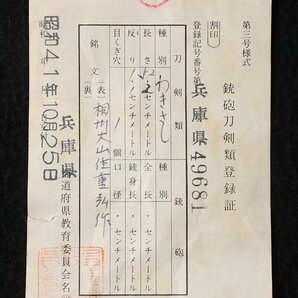 第三号様式
銃砲刀剣類登録証
割印
登録記号番号
兵庫県49681
刀剣類
銃砲
種別 わきざし
種別
長さ センチメートル
全長 センチメートル
反り センチメートル
銃身長 センチメートル
目くぎ穴 1個
口径 センチメートル
銘文(表)相州大山住重弘作
(裏)
昭和41年10月25日
兵庫県
道府県教育委員会